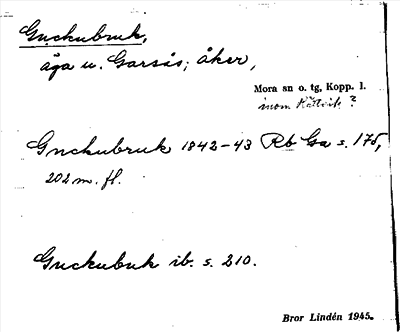 Gnckubruk,
äga u. Garsås; åker,
Mora sn o. tg, Kopp. l.
inom Rättvik?
Gnckubruk 1842-43 Rb Ga s. 175,
202 m. fl.
Gnckubuk ib. s. 210.
Bror Lindén 1945.